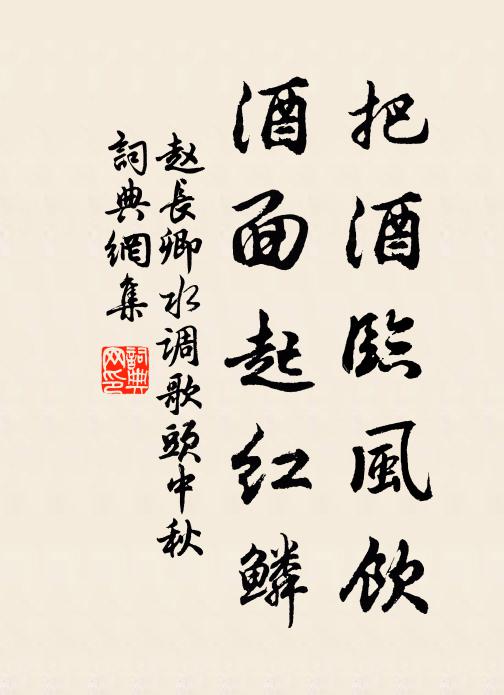 把酒臨風飲
酒面起红鱗
赵長卿水调歌頭中秋
詞典網集
詞典
网印